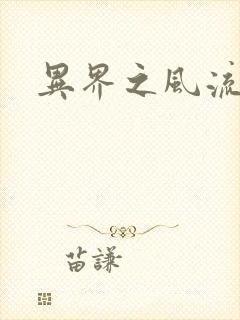 異界之風流
苗謙